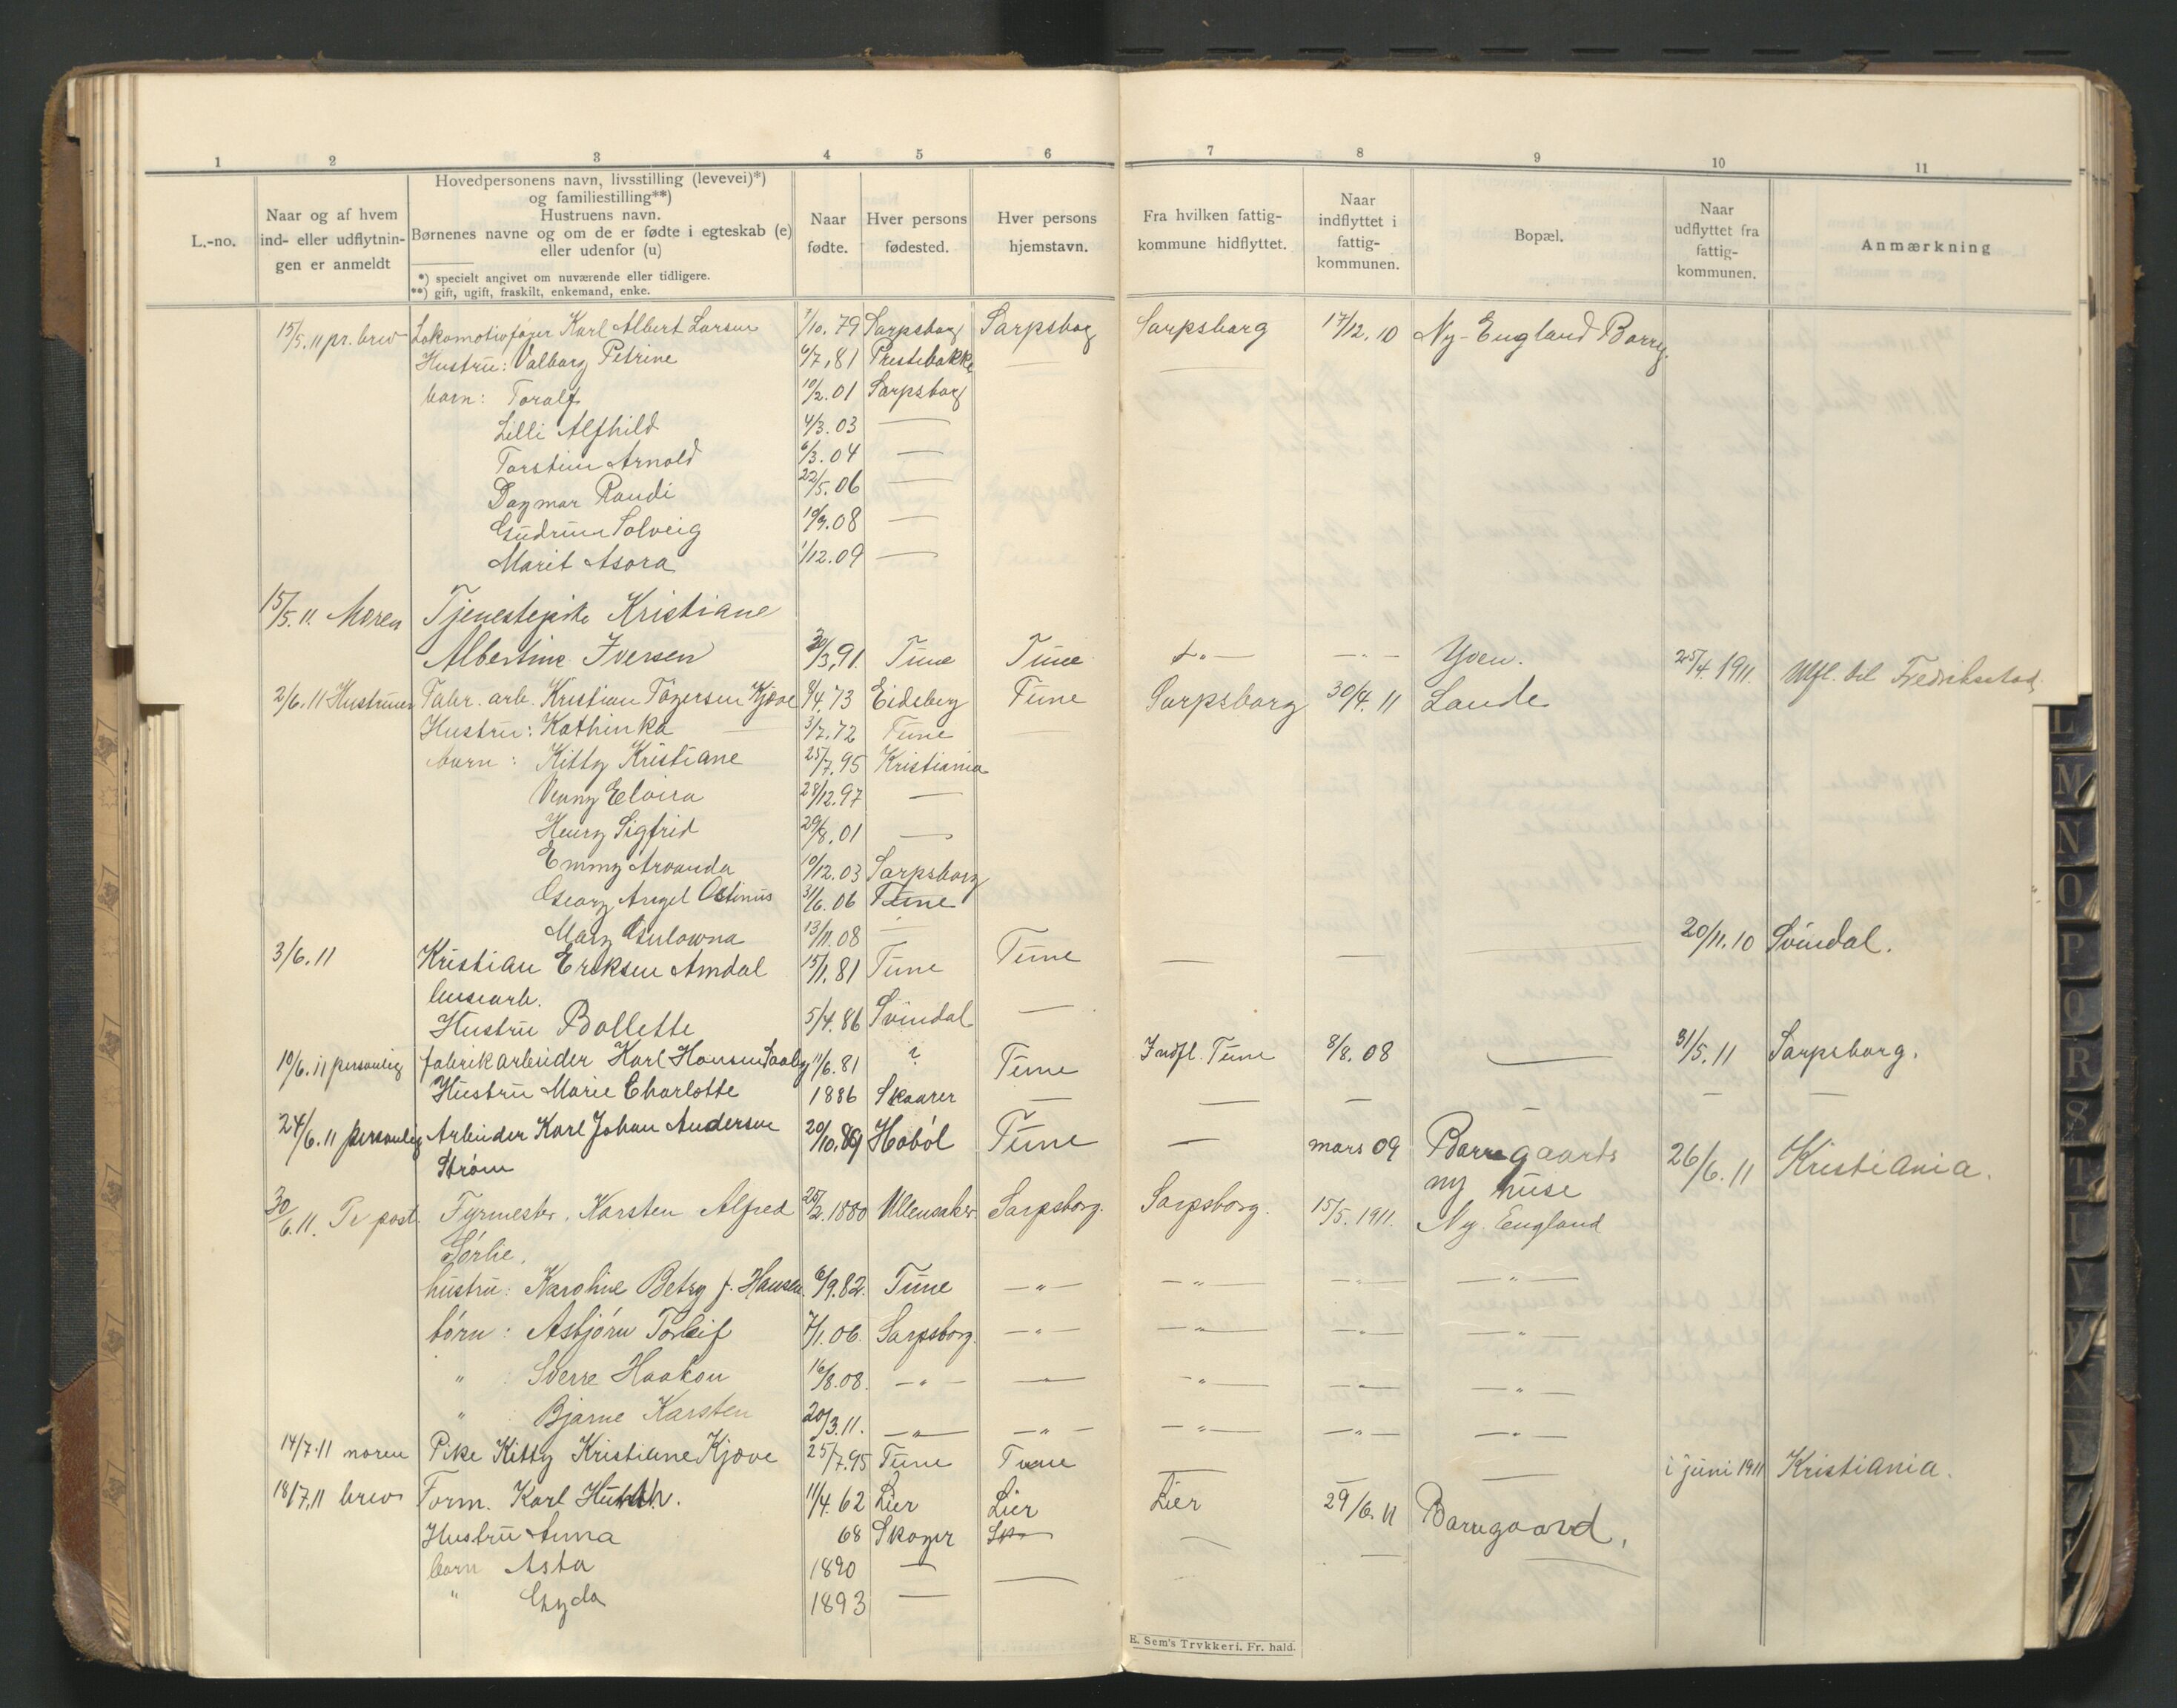 1 2 3 4 5 6 7 8 9 10 11
L.-no.
Naar og af hvem
ind- eller udflytnin-
gen er anmeldt
Hovedpersonens navn, livsstilling (levevei)*)
og familiestilling**)
Hustruens navn.
Børnenes navne og om de er fødte i egteskab (e)
eller udenfor (u)
*) specielt angivet om nuværende eller tidligere.
**) gift, ugift, fraskilt, enkemand, enke.
Naar
fødte.
Hver persons
fødested.
Hver persons
hjemstavn.
Fra hvilken fattig-
kommune hidflyttet.
Naar
indflyttet i
fattig-
kommunen.
Bopæl.
Naar
udflyttet fra
fattig-
kommunen.
Anmærkning
15/5.11 pr. brev Karl Albert Larsen 7/10.79 Sarpsborg Sarpsborg Sarpsborg 17/12.10 Ny-England Borreg.
Hustru: Valborg Petrine 6/7.81 Prestebakke —
barn: Toralf 10/2.01 Sarpsborg
Lilli Alfhild 4/3.03 —
Torstein Arnold 6/3.04 —
Dagmar Randi 22/5.06 —
Gudrun Solveig 19/9.08 —
Marit Asora 1/12.09 —
15/5.11. Moren Tjenestepike Kristiane
Albertine Iversen /3.91. Tune Tune Yven. 25/4.1911. Utfl. til Fredriksstad
2/6.11 Hustruen Fabr. arb. Kristian Tøgersen Kjøve 8/4.73 Eidsberg Tune Sarpsborg 30/4.11 Lande
Hustru: Kathinka 3/7.72 Tune
barn: Kitty Kristiane 25/7.95 Kristiania
Venny Elvira 28/12.97 —
Henry Sigfrid 29/8.01 —
Emmy Arvanda 10/12.03 Sarpsborg
Georg Angel 31/6.06 Tune
Mary 13/11.08 —
3/6.11 Kristian Eriksen Amdal 15/1.81 Tune Tune — — — 20/11.10 Svindal.
Hustru Bollette 5/4.86 Svindal —
10/6.11 personlig fabrikarbeider Karl Hansen 11/6.81 ? Tune Indfl. Tune 8/8.08 — 31/5.11 Sarpsborg.
Hustru Marie Charlotte 1886 Skaarer — — — — — —
24/6.11 personlig Arbeider Karl Johan Andersen 20/10.89 Hobøl Tune — mars 09 Borregaards 26/6.11 Kristiania.
Strøm ny huse
30/6.11. Pr post. Fyrmester. Karsten Alfred 25/2.1880 Ullensaker Sarpsborg. Sarpsborg. 15/5.1911. Ny. England
Sørlie.
hustru: Karoline Betzy f. Hansen 6/9.82. Tune —"— —"— —"— —"—
børn: Asbjørn Torleif 7/1.06. Sarpsborg. —"— —"— —"— —"—
" Sverre Haakon 16/8.08. —"— — —"— —"— —"—
" Bjarne Karsten 20/3.11. —"— —"— —"— —"— —"—
14/7.11 moren Pike Kitty Kristiane Kjøve 25/7.95 Tune Tune — — — i juni 1911 Kristiania.
18/7.11 brev Form. Karl 11/4.62 Lier Lier Lier 29/6.11 Borregaard.
Hustru Anna 68 Skoger
barn Asta 1890 — —
" Gyda 1893 —
E. Sem's Trykkeri. Fr. hald.
L
M
N
O
P
Q
R
S
T
U
V